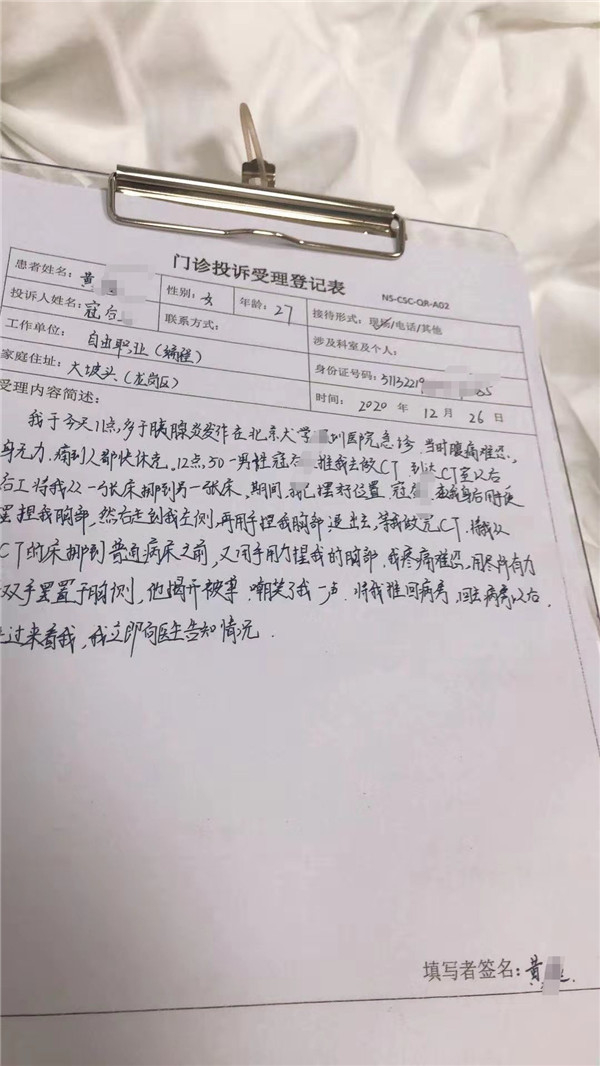 门诊投诉受理登记表
NS-CSC-QR-A02
患者姓名: 黄 性别: 女 年龄: 27 接待形式: 现场/电话/其他
投诉人姓名: 寇 联系方式: 涉及科室及个人:
工作单位: 自由职业(编程) 身份证号码: 5113221985
家庭住址: 大坡头(龙岗区) 时间: 2020 年 12 月 26 日
受理内容简述:
我于今天11点,多于胰腺炎发作在北京大学圳医院急诊,当时腹痛难忍,
身无力,痛到人都快休克,12点,50一男性寇推我去做CT,到达CT室以后
右工将我以一张床挪到另一张床,期间,我已摆好位置,寇在我身后用手
捏我胸部,然后走到我左侧,再用手捏我胸部,退出去,等我做完CT,将我以
CT的床挪到普通病床之前,又用手用力捏我的胸部,我疼痛难忍,用尽所有力
双手罣置于胸侧,他揭开被子嘲笑了我一声,将我推回病房,回去病房以后,
过来看我,我立即向医生告知情况.
填写者签名: 黄